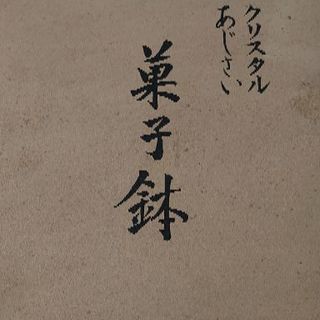 クリスタル
あじさい
菓子鉢